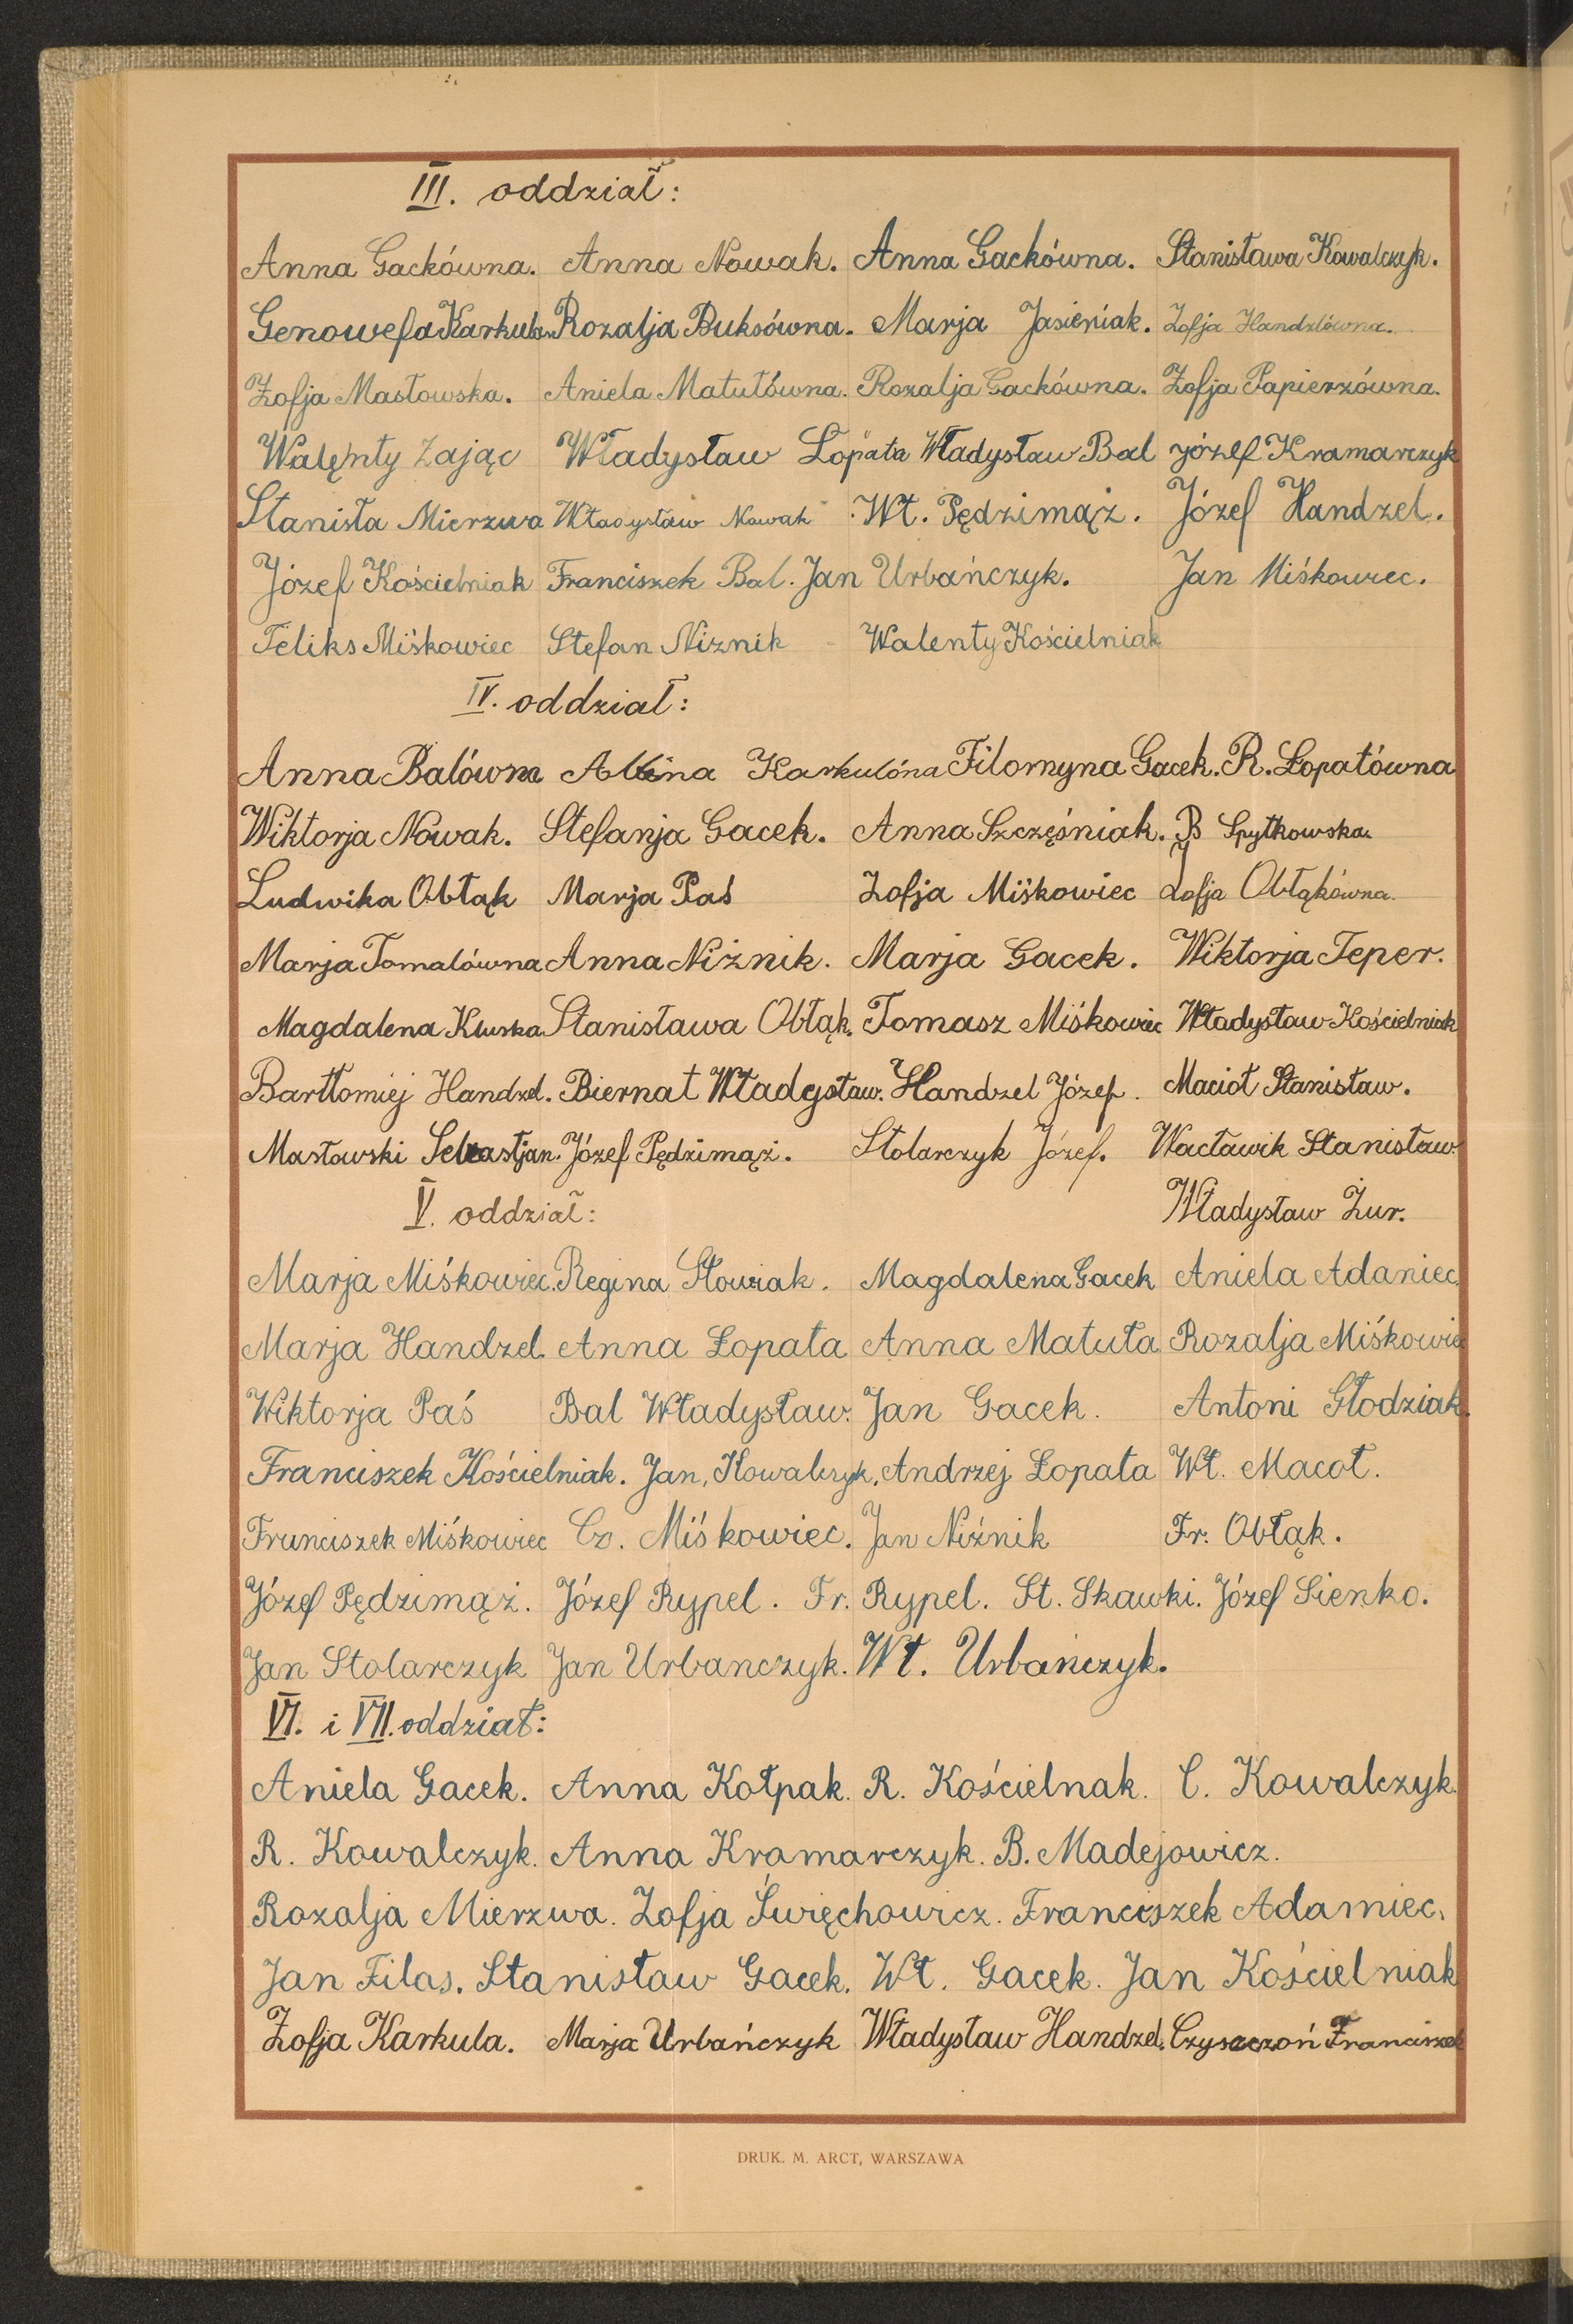 III. oddział:
Anna Gackówna. Anna Nowak. Anna Gackówna. Stanisława Kowalczyk.
Genowefa Karkula. Rozalja Buksówna. Marja Jasieniak. Zofja Handzlówna.
Zofja Masłowska. Aniela Matułówna. Rozalja Gackówna. Zofja Papierzówna.
Walęnty Zając Władysław Łopata Władysław Bal Józef Kramarczyk
Stanisła Mierzwa Władysław Nowak Wł. Pędzimąż. Józef Handzel.
Józef Kościelniak Franciszek Bal. Jan Urbańczyk. Jan Miśkowiec.
Feliks Miśkowiec Stefan Niznik Walenty Kościelniak
IV. oddział:
Anna Balówna Albina Karkulóna Filomyna Gacek. R. Łopatówna
Wiktorja Nowak. Stefanja Gacek. Anna Szczęśniak. B Spytkowska.
Ludwika Obłąk Marja Paś Zofja Miśkowiec Zofja Obłąkówna.
Marja Tomalówna Anna Niżnik. Marja Gacek. Wiktorja Teper.
Magdalena Kluska Stanisława Obłąk. Tomasz Miśkowiec Władysław Kościelniak
Bartłomiej Handzel. Biernat Władysław. Handzel Józef. Macioł Stanisław.
Masłowski Sebastjan. Józef Pędzimąż. Stolarczyk Józef. Wacławik Stanisław.
V. oddział: Władysław Żur.
Marja Miśkowiec. Regina Słowiak. Magdalena Gacek Aniela Adaniec.
Marja Handzel. Anna Łopata Anna Matuła Rozalja Miśkowiec
Wiktorja Paś Bal Władysław. Jan Gacek. Antoni Głodziak.
Franciszek Kościelniak. Jan, Kowalczyk. Andrzej Łopata Wł. Macoł.
Franciszek Miśkowiec Cz. Miśkowiec. Jan Niźnik Fr. Obłąk.
Józef Pędzimąż. Józef Rypel. Fr. Rypel. St. Skawki. Józef Sienko.
Jan Stolarczyk Jan Urbanczyk. Wł. Urbańczyk.
VI. i VII. oddział:
Aniela Gacek. Anna Kołpak. R. Kościelnak. C. Kowalczyk.
R. Kowalczyk. Anna Kramarczyk. B. Madejowicz.
Rozalja Mierzwa. Zofja Święchowicz. Franciszek Adamiec.
Jan Filas. Stanisław Gacek. Wł. Gacek. Jan Kościelniak
Zofja Karkula. Marja Urbańczyk Władysław Handzel. Czyszczoń Franciszek
DRUK. M. ARCT, WARSZAWA